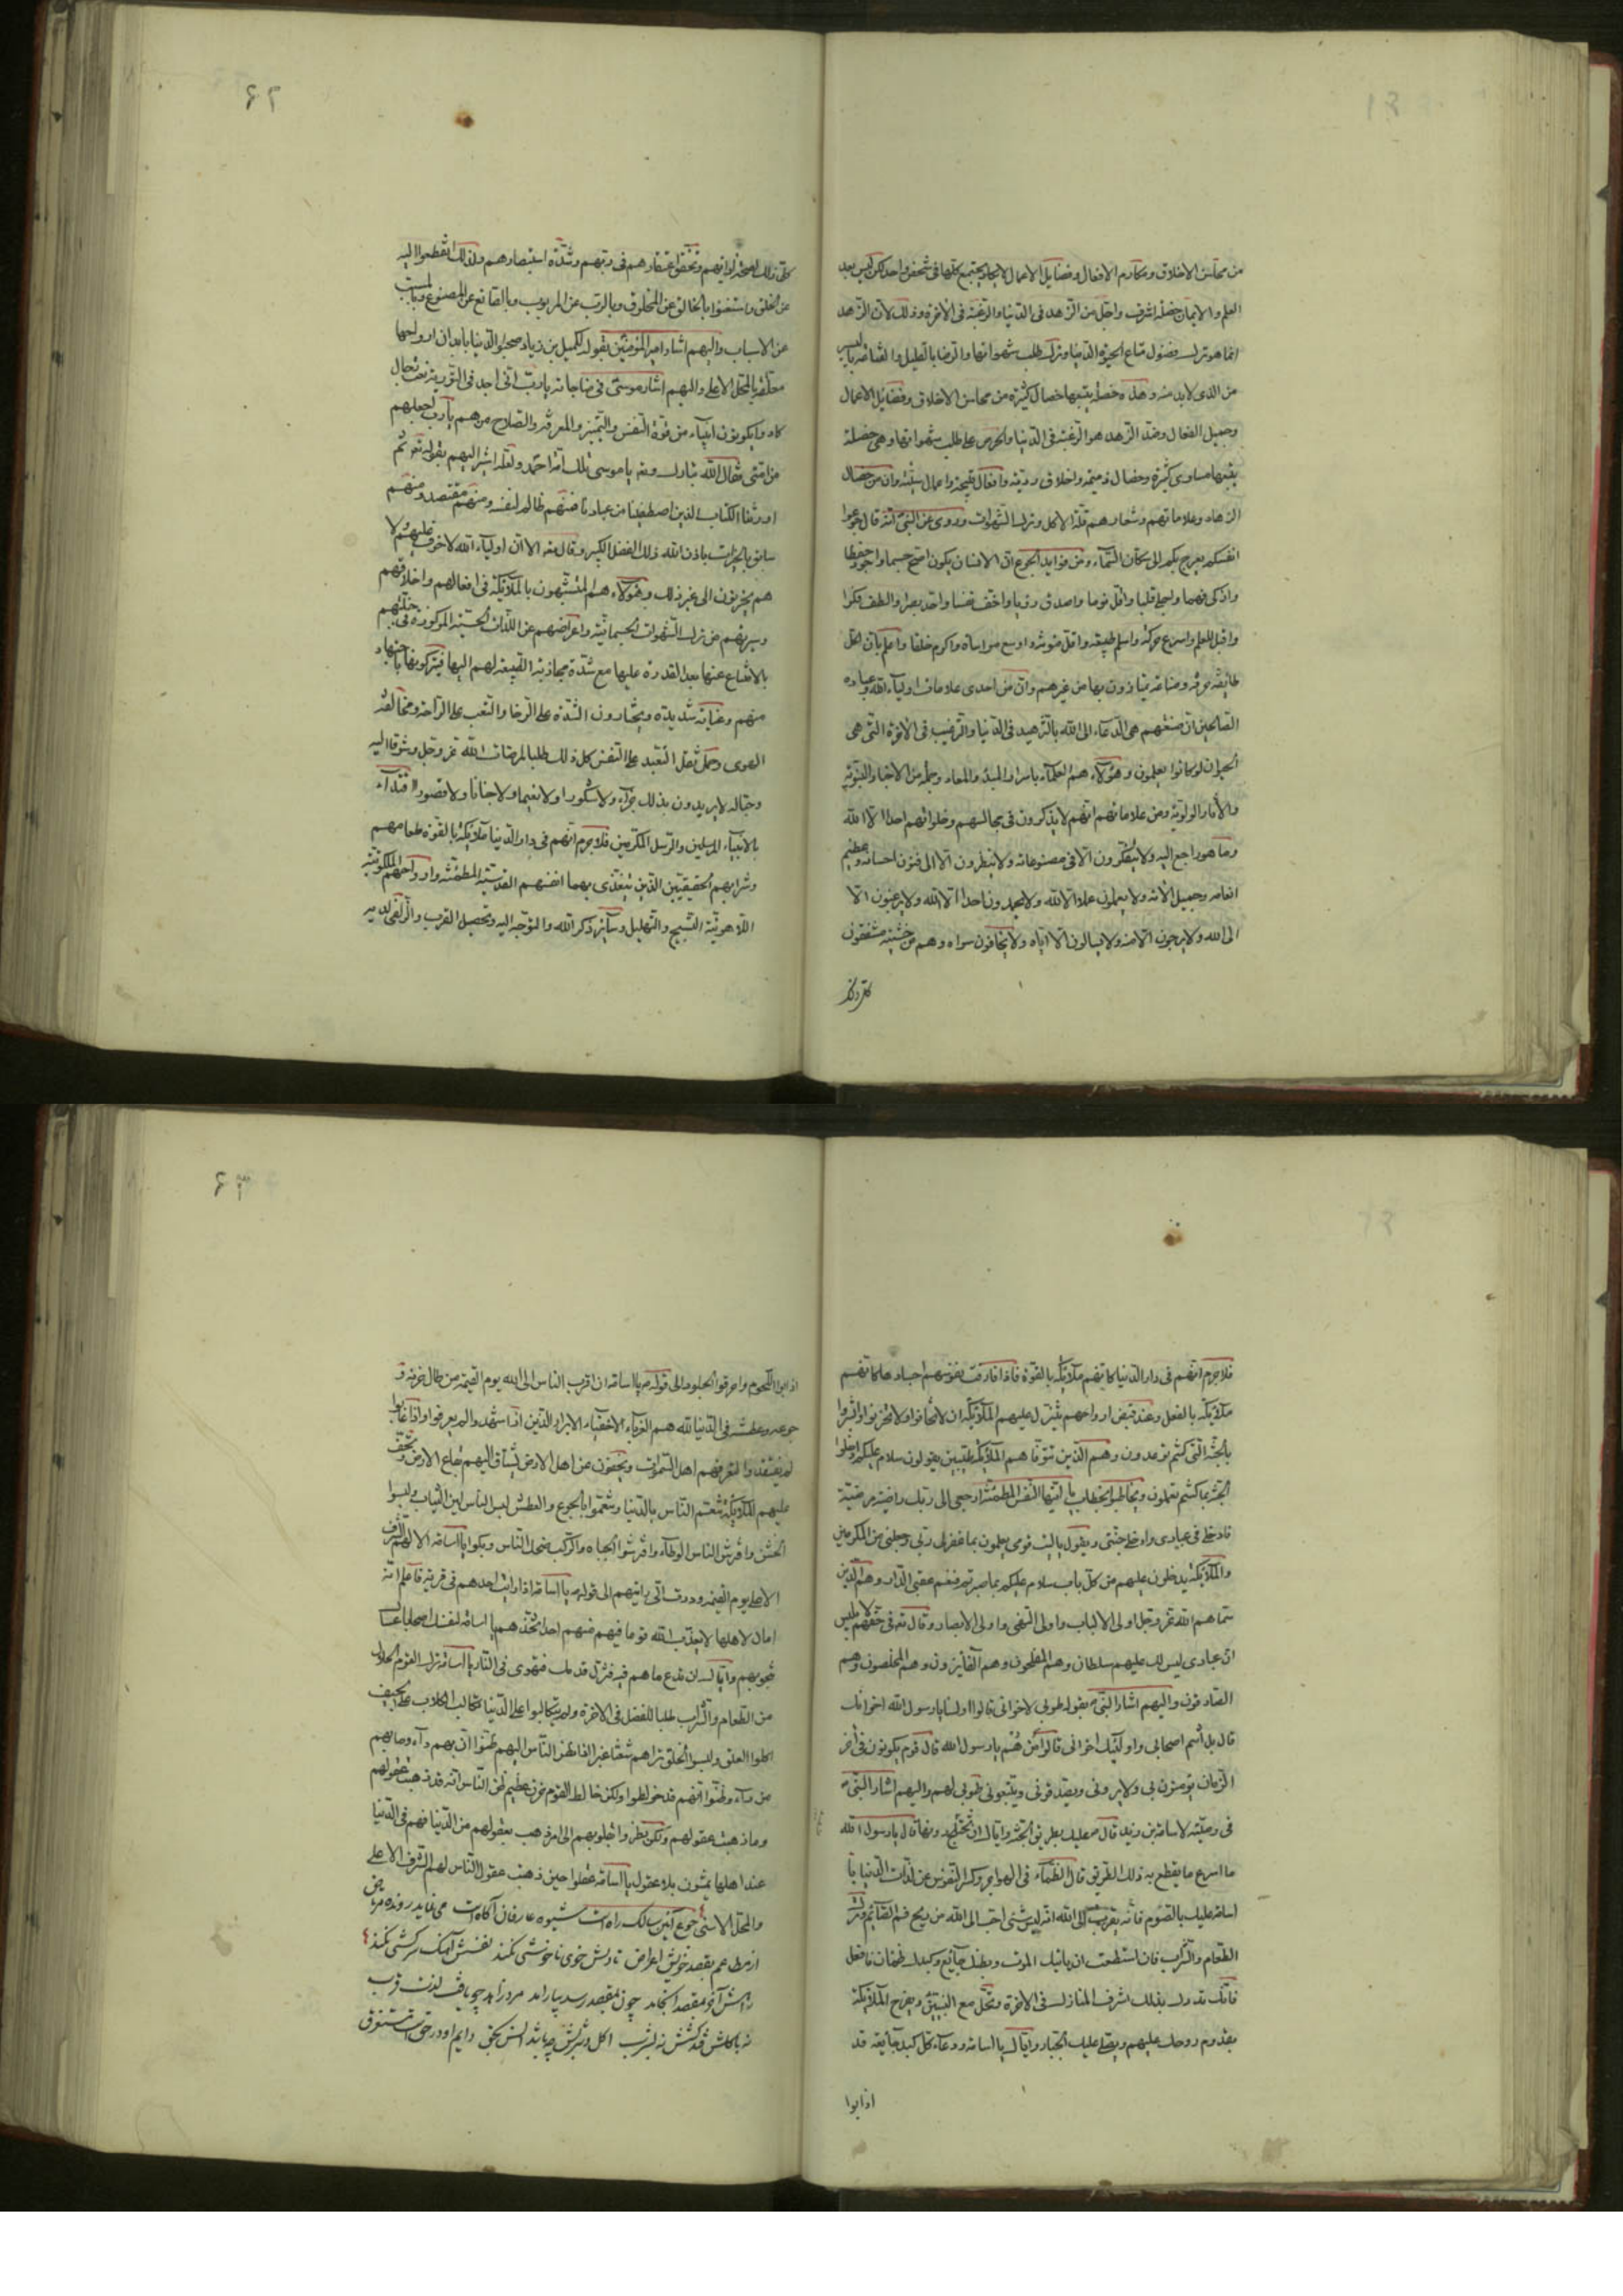 من محاسن الاخلاق ومكارم الافعال وفضايل الاعمال لا يجتمع كلها فى شخص واحد لكن ليس بعد
العلم والايمان خصلة اشرف واجل من الزهد فى الدنيا والرغبة فى الاخرة وذلك لان الزهد
انما هو ترك فضول متاع الحيوة الدنيا وترك طلب شهواتها والرضا بالقليل والقناعة باليسير
من الذى لا بد منه وهذه خصلة يتبعها خصال كثيرة من محاسن الاخلاق وفضايل الاعمال
وجميل الفعال وضد الزهد هو الرغبة فى الدنيا والحرص على طلب شهواتها وهى خصلة
يتبعها مساوى كثيرة وخصال ذميمة واخلاق ردية وافعال قبيحة واعمال سيئة وان من خصال
الزهاد وعلاماتهم وشعارهم قلة الاكل وترك الشهوات وروى عن النبى انه قال جوعوا
انفسكم يعرج بكم الى سكان السماء ومن فوايد الجوع ان الانسان يكون اصح جسما واجود حفظا
واذكى فهما واجلى قلبا واقل نوما واصدق رؤيا واخف نفسا واحد بصرا والطف فكرا
واقبل للعلم واسرع حركة واسلم طبيعة واقل مؤنة واوسع مواساة واكرم خلقا واعلم بان لكل
طايفة حرفة وصناعة يمتازون بها من غيرهم وان من احدى علامات اولياء الله وعباده
الصالحين ان صنعتهم هى الدعاء الى الله بالتزهيد فى الدنيا والترغيب فى الاخرة التى هى
الحيوان لو كانوا يعلمون وهؤلاء هم العلماء باسرار المبدء والمعاد وجملة من الاخبار النبوية
والاثار الولوية ومن علاماتهم انهم لا يذكرون فى مجالسهم وخلواتهم احدا الا الله
وما هو راجع اليه ولا يتفكرون الا فى مصنوعاته ولا ينظرون الا الى فنون احسانه وعظيم
انعامه وجميل الائه ولا يعملون عملا الا لله ولا يحمدون احدا الا الله ولا يرغبون الا
الى الله ولا يرجون الا منه ولا يسالون الا اياه ولا يخافون سواه وهم من خشيته مشفقون
كل ذلك
۶۲
كل ذلك لصحة ارائهم وتحقق اعتقادهم فى ربهم وشدة استبصارهم ولذلك انقطعوا اليه
عن الخلق واستغنوا بالخالق عن المخلوق وبالرب عن المربوب وبالصانع عن المصنوع وبالمسبب
عن الاسباب واليهم اشار امير المؤمنين بقوله لكميل بن زياد صحبوا الدنيا بابدان ارواحها
معلقة بالمحل الاعلى واليهم اشار موسى فى مناجاته يا رب انى اجد فى التورية نعت رجال
كادوا يكونون انبياء من قوة النفس والتميز والمعرفة والصلاح من هم يا رب اجعلهم
من امتى فقال الله تبارك وتعه يا موسى تلك امة احمد ولعله اشير اليهم بقوله تعه ثم
اورثنا الكتاب الذين اصطفينا من عبادنا فمنهم ظالم لنفسه ومنهم مقتصد ومنهم
سابق بالخيرات باذن الله ذلك الفضل الكبير وقال تعه الا ان اولياء الله لا خوف عليهم ولا
هم يحزنون الى غير ذلك وهؤلاء هم المتشبهون بالملائكة فى افعالهم واخلاقهم
وسيرتهم من ترك الشهوات الجسمانية واعراضهم عن اللذات الحسية المركوزة فى جبلتهم
بالامتناع عنها بعد القدرة عليها مع شدة مجاذبة الطبيعة لهم اليها فيتركونها باجتهاد
منهم وعناية شديدة ويختارون الشدة على الرخا والتعب على الراحة ومخالفة
الهوى وحمل ثقل التعبد على النفس كل ذلك طلبا لمرضات الله عز وجل وشوقا اليه
وحبا له لا يريدون بذلك جزاء ولا شكورا ولا نعيما ولا جنانا ولا قصورا اقتداء
بالانبياء المرسلين والرسل المكرمين فلا جرم انهم فى دار الدنيا ملائكة بالقوة طعامهم
وشرابهم الحقيقيين الذين يتغذى بهما انفسهم القدسية المطمئنة وارواحهم الملكوتية
اللاهوتية التسبيح والتهليل وساير ذكر الله والتوجه اليه وتحصيل القرب والزلفى لديه
فلا جرم انهم فى دار الدنيا كانهم ملائكة بالقوة فاذا فارقت نفوسهم اجسادها كانهم
ملائكة بالفعل وعند قبض ارواحهم يتنزل عليهم الملائكة ان لا تخافوا ولا تحزنوا وابشروا
بالجنة التى كنتم توعدون وهم الذين تتوفاهم الملائكة طيبين يقولون سلام عليكم ادخلوا
الجنة بما كنتم تعملون ويخاطبوا بخطاب يا ايتها النفس المطمئنة ارجعى الى ربك راضية مرضية
فادخلى فى عبادى وادخلى جنتى ويقول يا ليت قومى يعلمون بما غفر لى ربى وجعلنى من المكرمين
والملائكة يدخلون عليهم من كل باب سلام عليكم بما صبرتم فنعم عقبى الدار وهم الذين
سماهم الله عز وجل اولى الالباب واولى النهى واولى الابصار وقال تعه فى حقهم لابليس
ان عبادى ليس لك عليهم سلطان وهم المفلحون وهم الفائزون وهم المخلصون وهم
الصادقون واليهم اشار النبى ص بقوله طوبى لاخوانى قالوا اولسنا يا رسول الله اخوانك
قال بل انتم اصحابى واولئك اخوانى قالوا من هم يا رسول الله قال قوم يكونون فى اخر
الزمان يؤمنون بى ولا يرونى ويصدقونى ويتبعونى طوبى لهم واليهم اشار النبى ص
فى وصيته لاسامة بن زيد قال ص عليك بطريق الجنة واياك ان تختلج دونها قال يا رسول الله
ما اسرع ما يقطع به ذلك الطريق قال الظماء فى الهواجر وكسر النفوس عن لذات الدنيا يا
اسامة عليك بالصوم فانه يقرب الى الله انه ليس شىء احب الى الله من ريح فم الصائم وترك
الطعام والشراب فان استطعت ان ياتيك الموت وبطنك جايع وكبدك ظمئان فافعل
فانك تدرك بذلك اشرف المنازل فى الاخرة وتحل مع النبيين ويفرح الملائكة
بقدوم روحك عليهم ويصلى عليك الجبار واياك يا اسامة ودعاء كل كبد جايعة قد
اذابوا
۶۳
اذابوا اللحوم واحرقوا الجلود الى قوله ص يا اسامة ان اقرب الناس الى الله يوم القيمة من طال حزنه و
جوعه وعطشه فى الدنيا لله هم الغرباء الاخفياء الابرار الذين اذا شهدوا لم يعرفوا واذا غابوا
لم يفتقدوا تعرفهم اهل السموات ويخفون عن اهل الارض يشتاق اليهم بقاع الارض وتحف
عليهم الملائكة تنعم الناس بالدنيا وتنعموا بالجوع والعطش لبس الناس لين الثياب ولبسوا
الخشن وافترش الناس الوطاء وافترشوا الجباه والركب ضحك الناس وبكوا يا اسامة الا لهم الشرف
الاعلى يوم القيمة ووددت انى رايتهم الى قوله ص يا اسامة اذا رايت احدهم فى قرية فاعلم انه
امان لاهلها لا يعذب الله قوما فيهم منهم احد اتخذهم يا اسامة لنفسك اصحابا عساك
تنجو بهم واياك ان تدع ما هم فيه فتزل قدمك فتهوى فى النار يا اسامة ترك القوم الحلال
من الطعام والشراب طلبا للفضل فى الاخرة ولم يتكالبوا على الدنيا تكالب الكلاب على الجيف
اكلوا العلق ولبسوا الخلق تراهم شعثا غبرا اذا نظر الناس اليهم ظنوا ان بهم داء وما بهم
من داء وظنوا انهم قد خولطوا ولكن خالط القوم حزن عظيم ظن الناس انه قد ذهبت عقولهم
وما ذهبت عقولهم ولكن نظروا بقلوبهم الى امر ذهب بعقولهم من الدنيا فهم فى الدنيا
عند اهلها يمشون بلا عقول يا اسامة عقلوا حين ذهبت عقول الناس لهم الشرف الاعلى
والمحل الاسنى جوع آئين سالك راه است شيوه عارفان آگاه است مى نمايد رونده مرتاض
از مطاعم بقصد خويش اعراض تا دلش خوى ناخوشى نكند نفسش آهنگ سركشى نكند
چون بمقصد رسد بيارامد مرد زاهد چو يافت لذت قرب
نه باكلش كشش نه بشرب اكل وشربش چه باشد انس بحق دايم او در حق است مستغرق